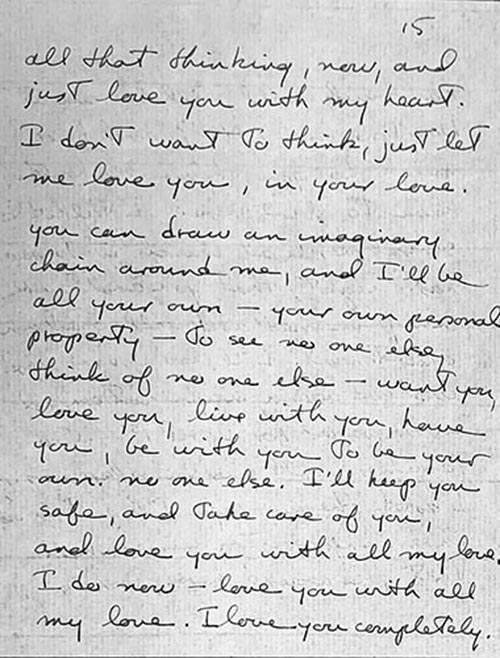 15
all that thinking, now, and
just love you with my heart.
I don't want to think, just let
me love you, in your love.
you can draw an imaginary
chain around me, and I'll be
all your own – your own personal
property – to see no one else,
think of no one else – want you,
love you, live with you, have
you, be with you to be your
own. no one else. I'll keep you
safe, and take care of you,
and love you with all my love.
I do now – love you with all
my love. I love you completely.